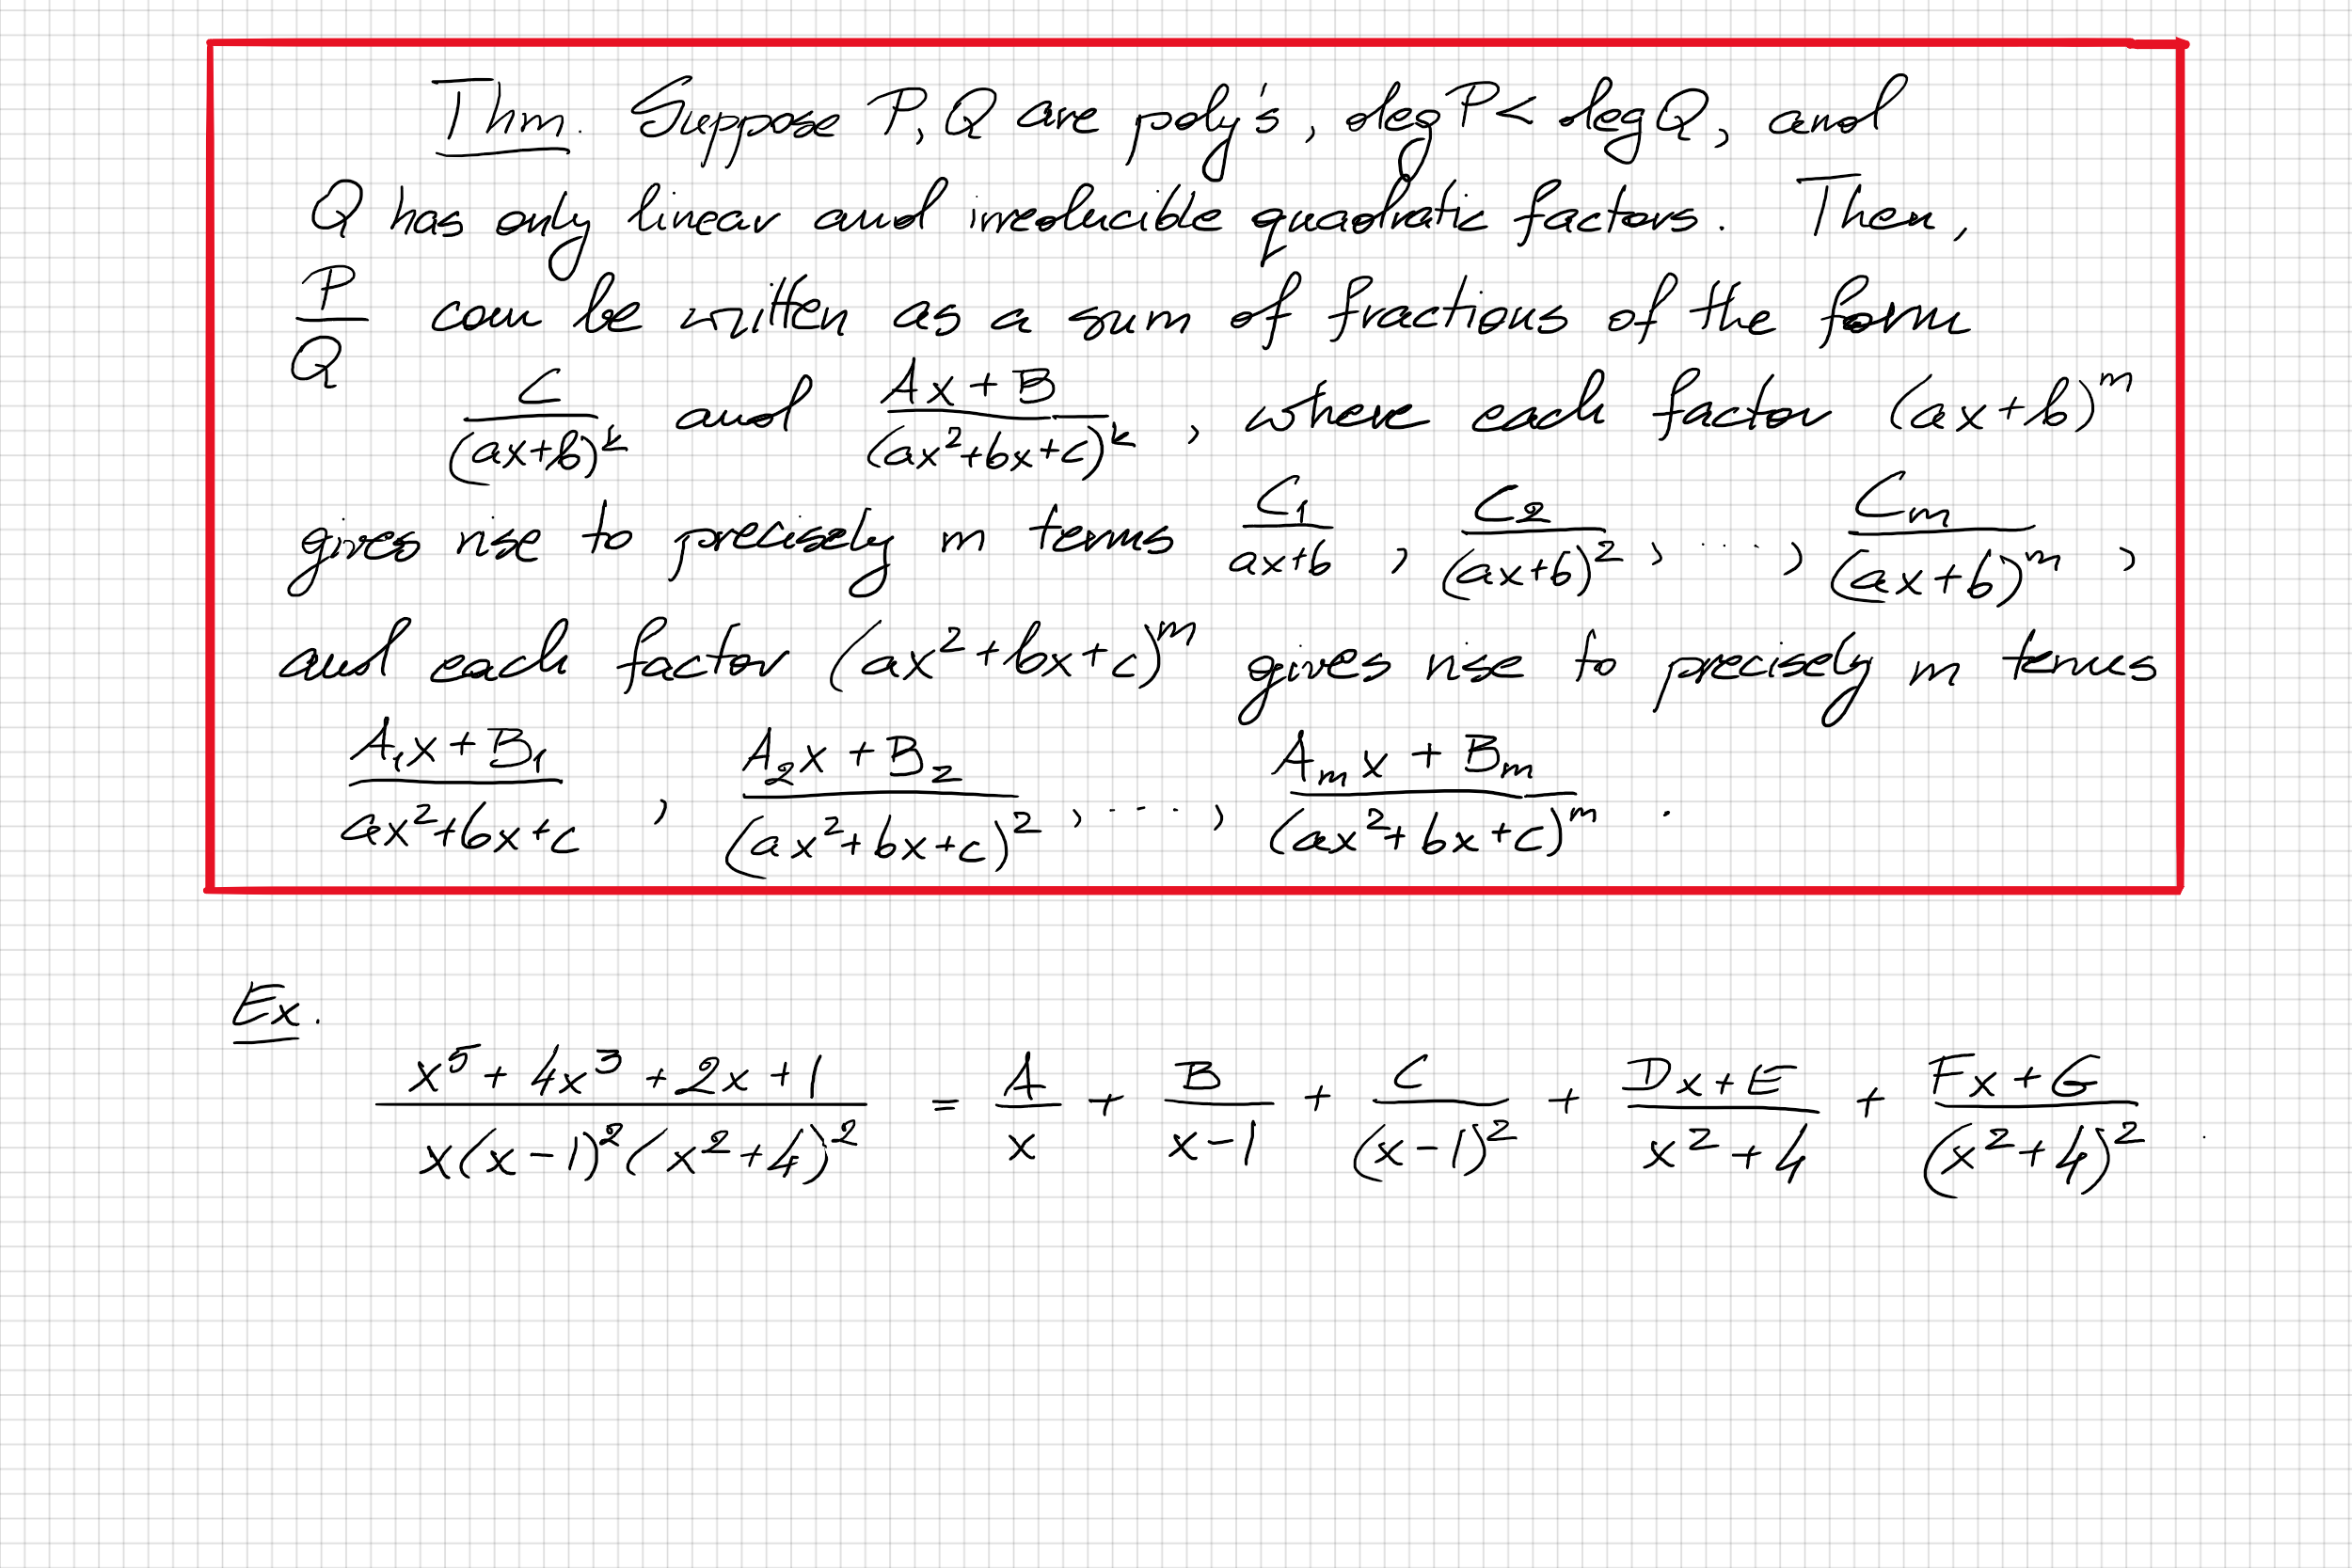 Thm. Suppose P, Q are poly's, deg P < deg Q, and
Q has only linear and irreducible quadratic factors. Then,
P/Q can be written as a sum of fractions of the form
C/(ax+b)^k and (Ax+B)/(ax²+bx+c)^k, where each factor (ax+b)^m
gives rise to precisely m terms C₁/(ax+b), C₂/(ax+b)², ..., C_m/(ax+b)^m,
and each factor (ax²+bx+c)^m gives rise to precisely m terms
(A₁x+B₁)/(ax²+bx+c), (A₂x+B₂)/(ax²+bx+c)², ..., (A_m x+B_m)/(ax²+bx+c)^m.
Ex.
(x⁵+4x³+2x+1)/(x(x-1)²(x²+4)²) = A/x + B/(x-1) + C/(x-1)² + (Dx+E)/(x²+4) + (Fx+G)/(x²+4)².